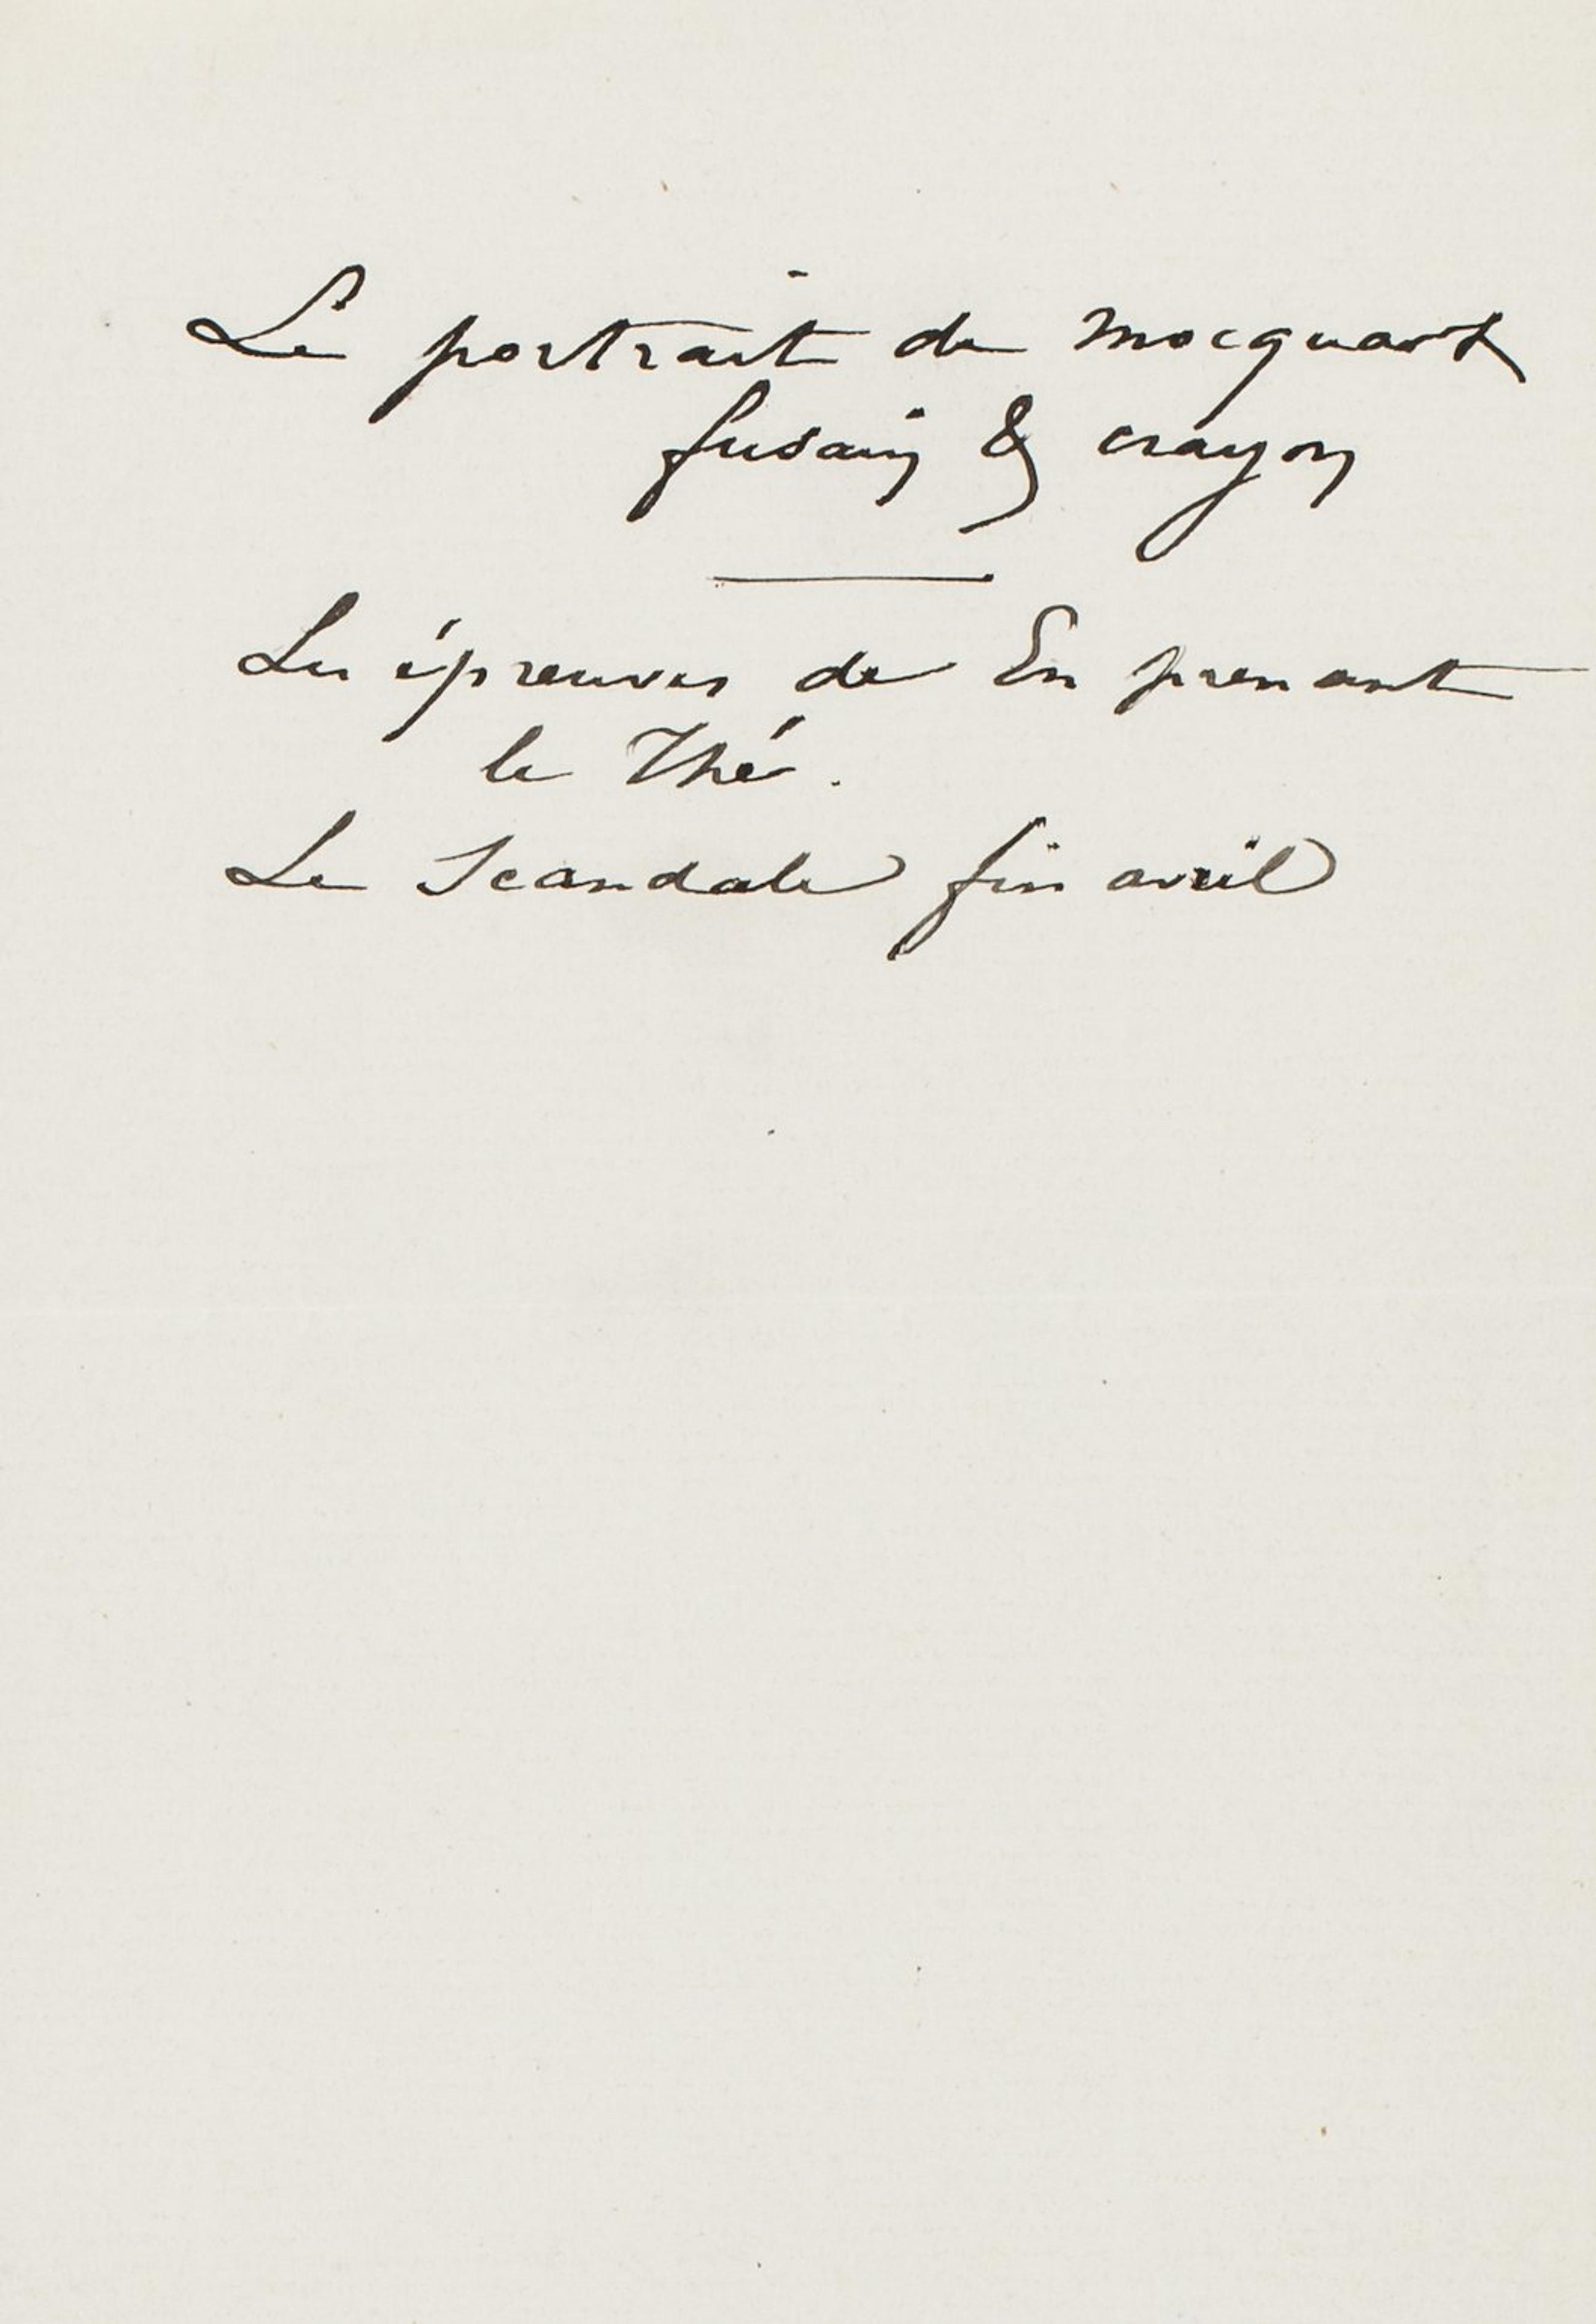 Le portrait de Mocquart
fusain & crayon
Les épreuves de En prenant
le Thé.
Le Scandale fin avril